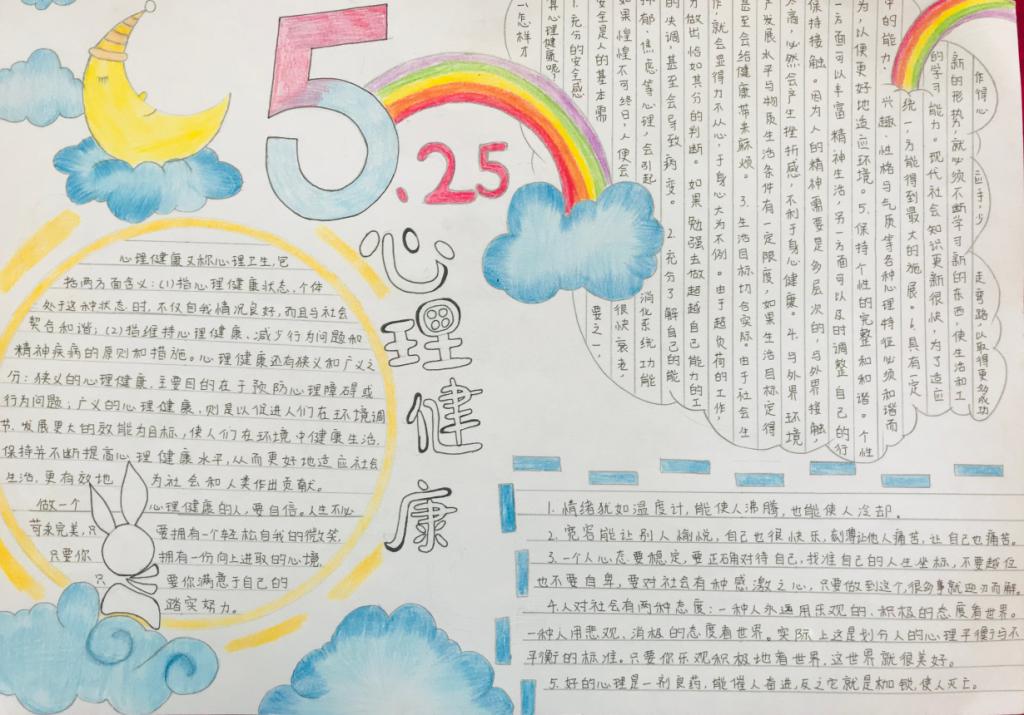 5.25
心理健康
心理健康又称心理卫生,包
括两方面含义:(1)指心理健康状态,个体
处于这种状态时,不仅自我情况良好,而且与社会
契合和谐;(2)指维持心理健康、减少行为问题和
精神疾病的原则和措施。心理健康还有狭义和广义之
分:狭义的心理健康,主要目的在于预防心理障碍或
行为问题;广义的心理健康,则是以促进人们在环境调
节、发展更大的效能为目标,使人们在环境中健康生活,
保持并不断提高心理健康水平,从而更好地适应社会
生活,更有效地为社会和人类作出贡献。
做一个心理健康的人,要自信。人生不必
苛求完美,只要拥有一个轻松自我的微笑,
只要你拥有一份向上进取的心境,
只要你满意于自己的
踏实努力。
怎样才
算心理健康呢?
1.充分的安全感
安全是人的基本需
要之一,
如果惶惶不可终日,人便会
很快衰老,
抑郁、焦虑等心理,会引起消化系统功能
的失调,甚至会导致病变。2.充分了解自己的能
力做出恰如其分的判断。如果勉强去做超越自己能力的工
作,就会显得力不从心,于身心大为不例。由于超负荷的工作,
甚至会给健康带来麻烦。3.生活目标切合实际。由于社会生
产发展水平与物质生活条件有一定限度,如果生活目标定得
太高,必然会产生挫折感,不利于身心健康。4.与外界环境
保持接触。因为人的精神需要是多层次的,与外界接触,
一方面可以丰富精神生活,另一方面可以及时调整自己的行
为,以便更好地适应环境。5.保持个性的完整和和谐。个性
中的能力、兴趣、性格与气质等各种心理特征必须和谐而
统一,方能得到最大的施展。6.具有一定
的学习能力。现代社会知识更新很快,为了适应
新的形势,就必须不断学习新的东西,使生活和工
作得心应手,少走弯路,以取得更多成功
1.情绪犹如温度计,能使人沸腾,也能使人冷却。
2.宽容能让别人愉悦,自己也很快乐,刻薄让他人痛苦,让自己也痛苦。
3.一个人心态要稳定,要正确对待自己,找准自己的人生坐标,不要越位
也不要自卑,要对社会有种感激之心,只要做到这个,很多事就迎刃而解。
4.人对社会有两种态度:一种人永远用乐观的、积极的态度看世界。
一种人用悲观、消极的态度看世界。实际上这是划分人的心理平衡与不
平衡的标准。只要你乐观积极地看世界,这世界就很美好。
5.好的心理是一剂良药,能催人奋进,反之它就是枷锁,使人灭亡。